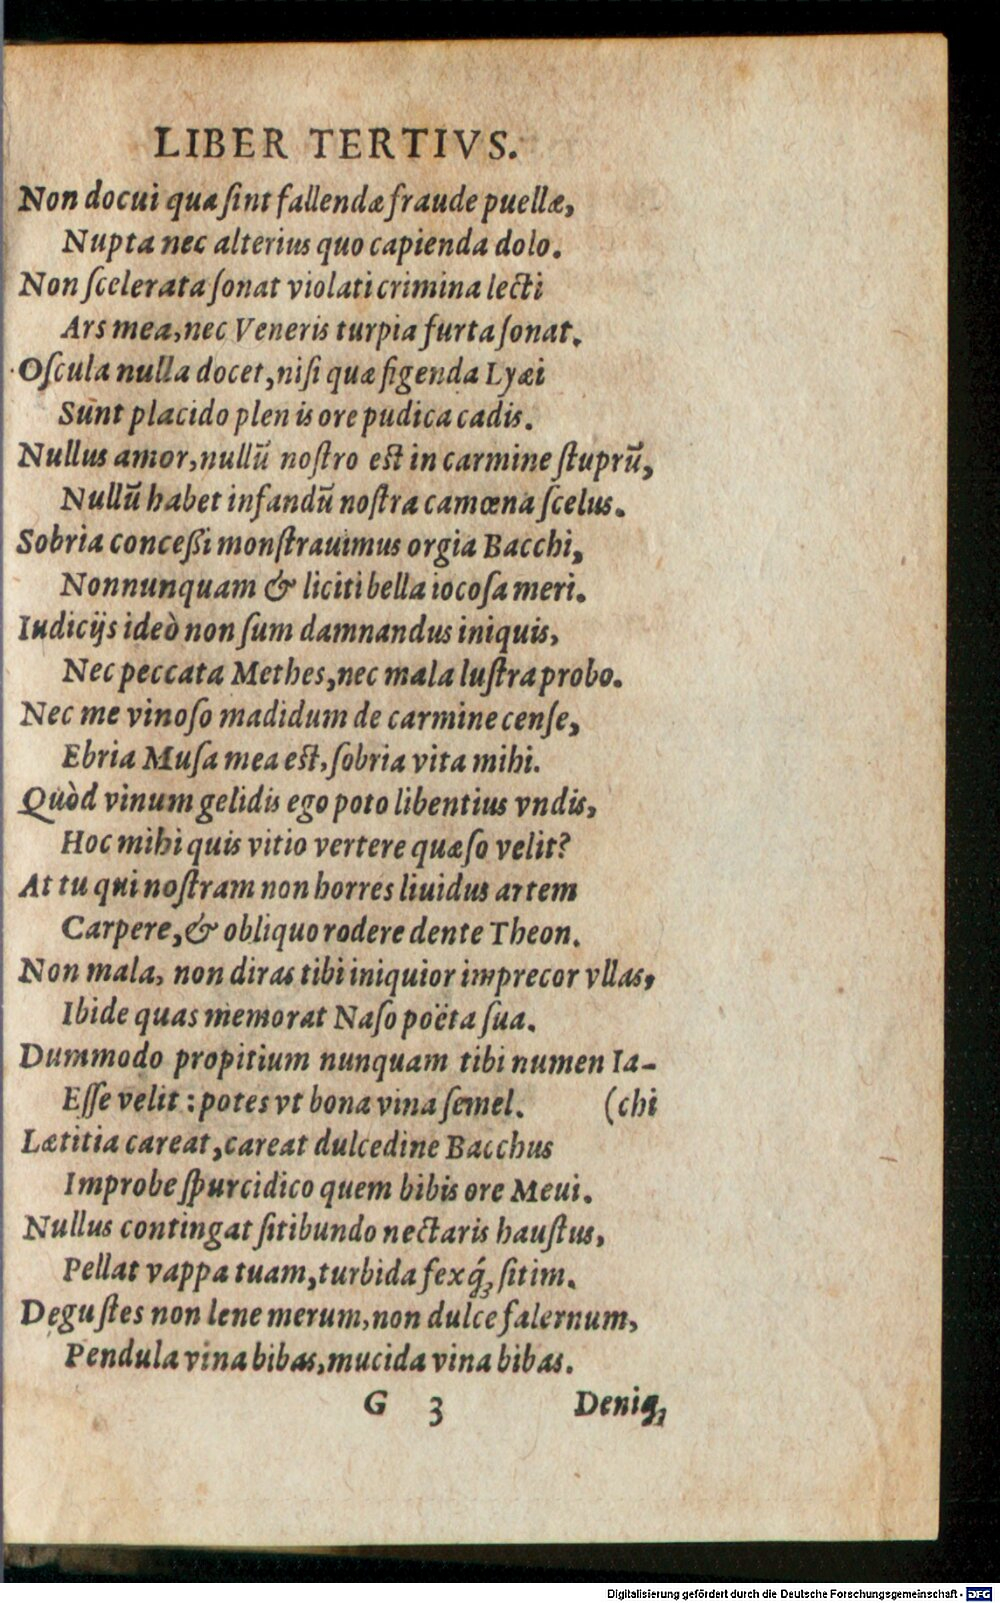 LIBER TERTIVS.
Non docui qua ſint fallendæ fraude puellæ,
Nupta nec alterius quo capienda dolo.
Non ſcelerata ſonat violati crimina lecti
Ars mea, nec Veneris turpia furta ſonat.
Oſcula nulla docet, niſi quæ figenda Lyæi
Sunt placido plenis ore pudica cadis.
Nullus amor, nullũ noſtro eſt in carmine ſtuprũ,
Nullũ habet infandũ noſtra camœna ſcelus.
Sobria conceßi monſtrauimus orgia Bacchi,
Nonnunquam & liciti bella iocoſa meri.
Iudicijs ideò non ſum damnandus iniquis,
Nec peccata Methes, nec mala luſtra probo.
Nec me vinoſo madidum de carmine cenſe,
Ebria Muſa mea eſt, ſobria vita mihi.
Quòd vinum gelidis ego poto libentius vndis,
Hoc mihi quis vitio vertere quæſo velit?
At tu qui noſtram non horres liuidus artem
Carpere, & obliquo rodere dente Theon.
Non mala, non diras tibi iniquior imprecor vllas,
Ibide quas memorat Naſo poëta ſua.
Dummodo propitium nunquam tibi numen Ia-
Eſſe velit : potes vt bona vina ſemel. (chi
Lætitia careat, careat dulcedine Bacchus
Improbe ſpurcidico quem bibis ore Meui.
Nullus contingat ſitibundo nectaris hauſtus,
Pellat vappa tuam, turbida fexq́; ſitim.
Deguſtes non lene merum, non dulce falernum,
Pendula vina bibas, mucida vina bibas.
G 3 Deniq;
Digitalisierung gefördert durch die Deutsche Forschungsgemeinschaft - DFG